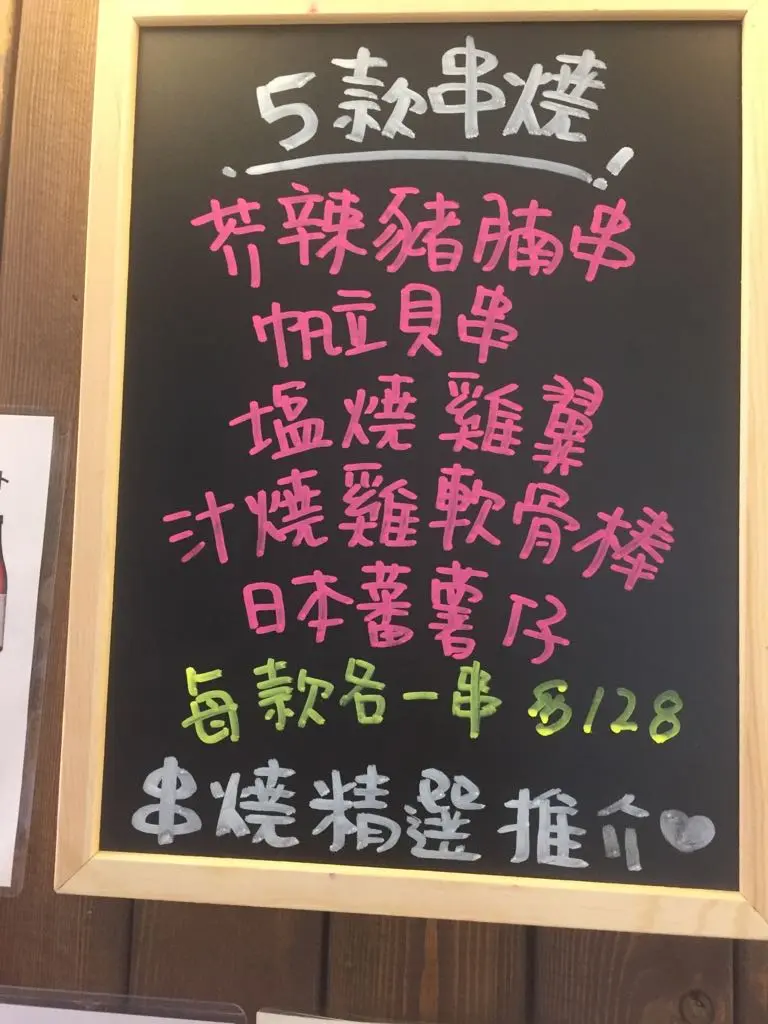 5款串燒!
芥辣豬腩串
帆立貝串
塩燒雞翼
汁燒雞軟骨棒
日本蕃薯仔
每款各一串 $128
串燒精選推介♥